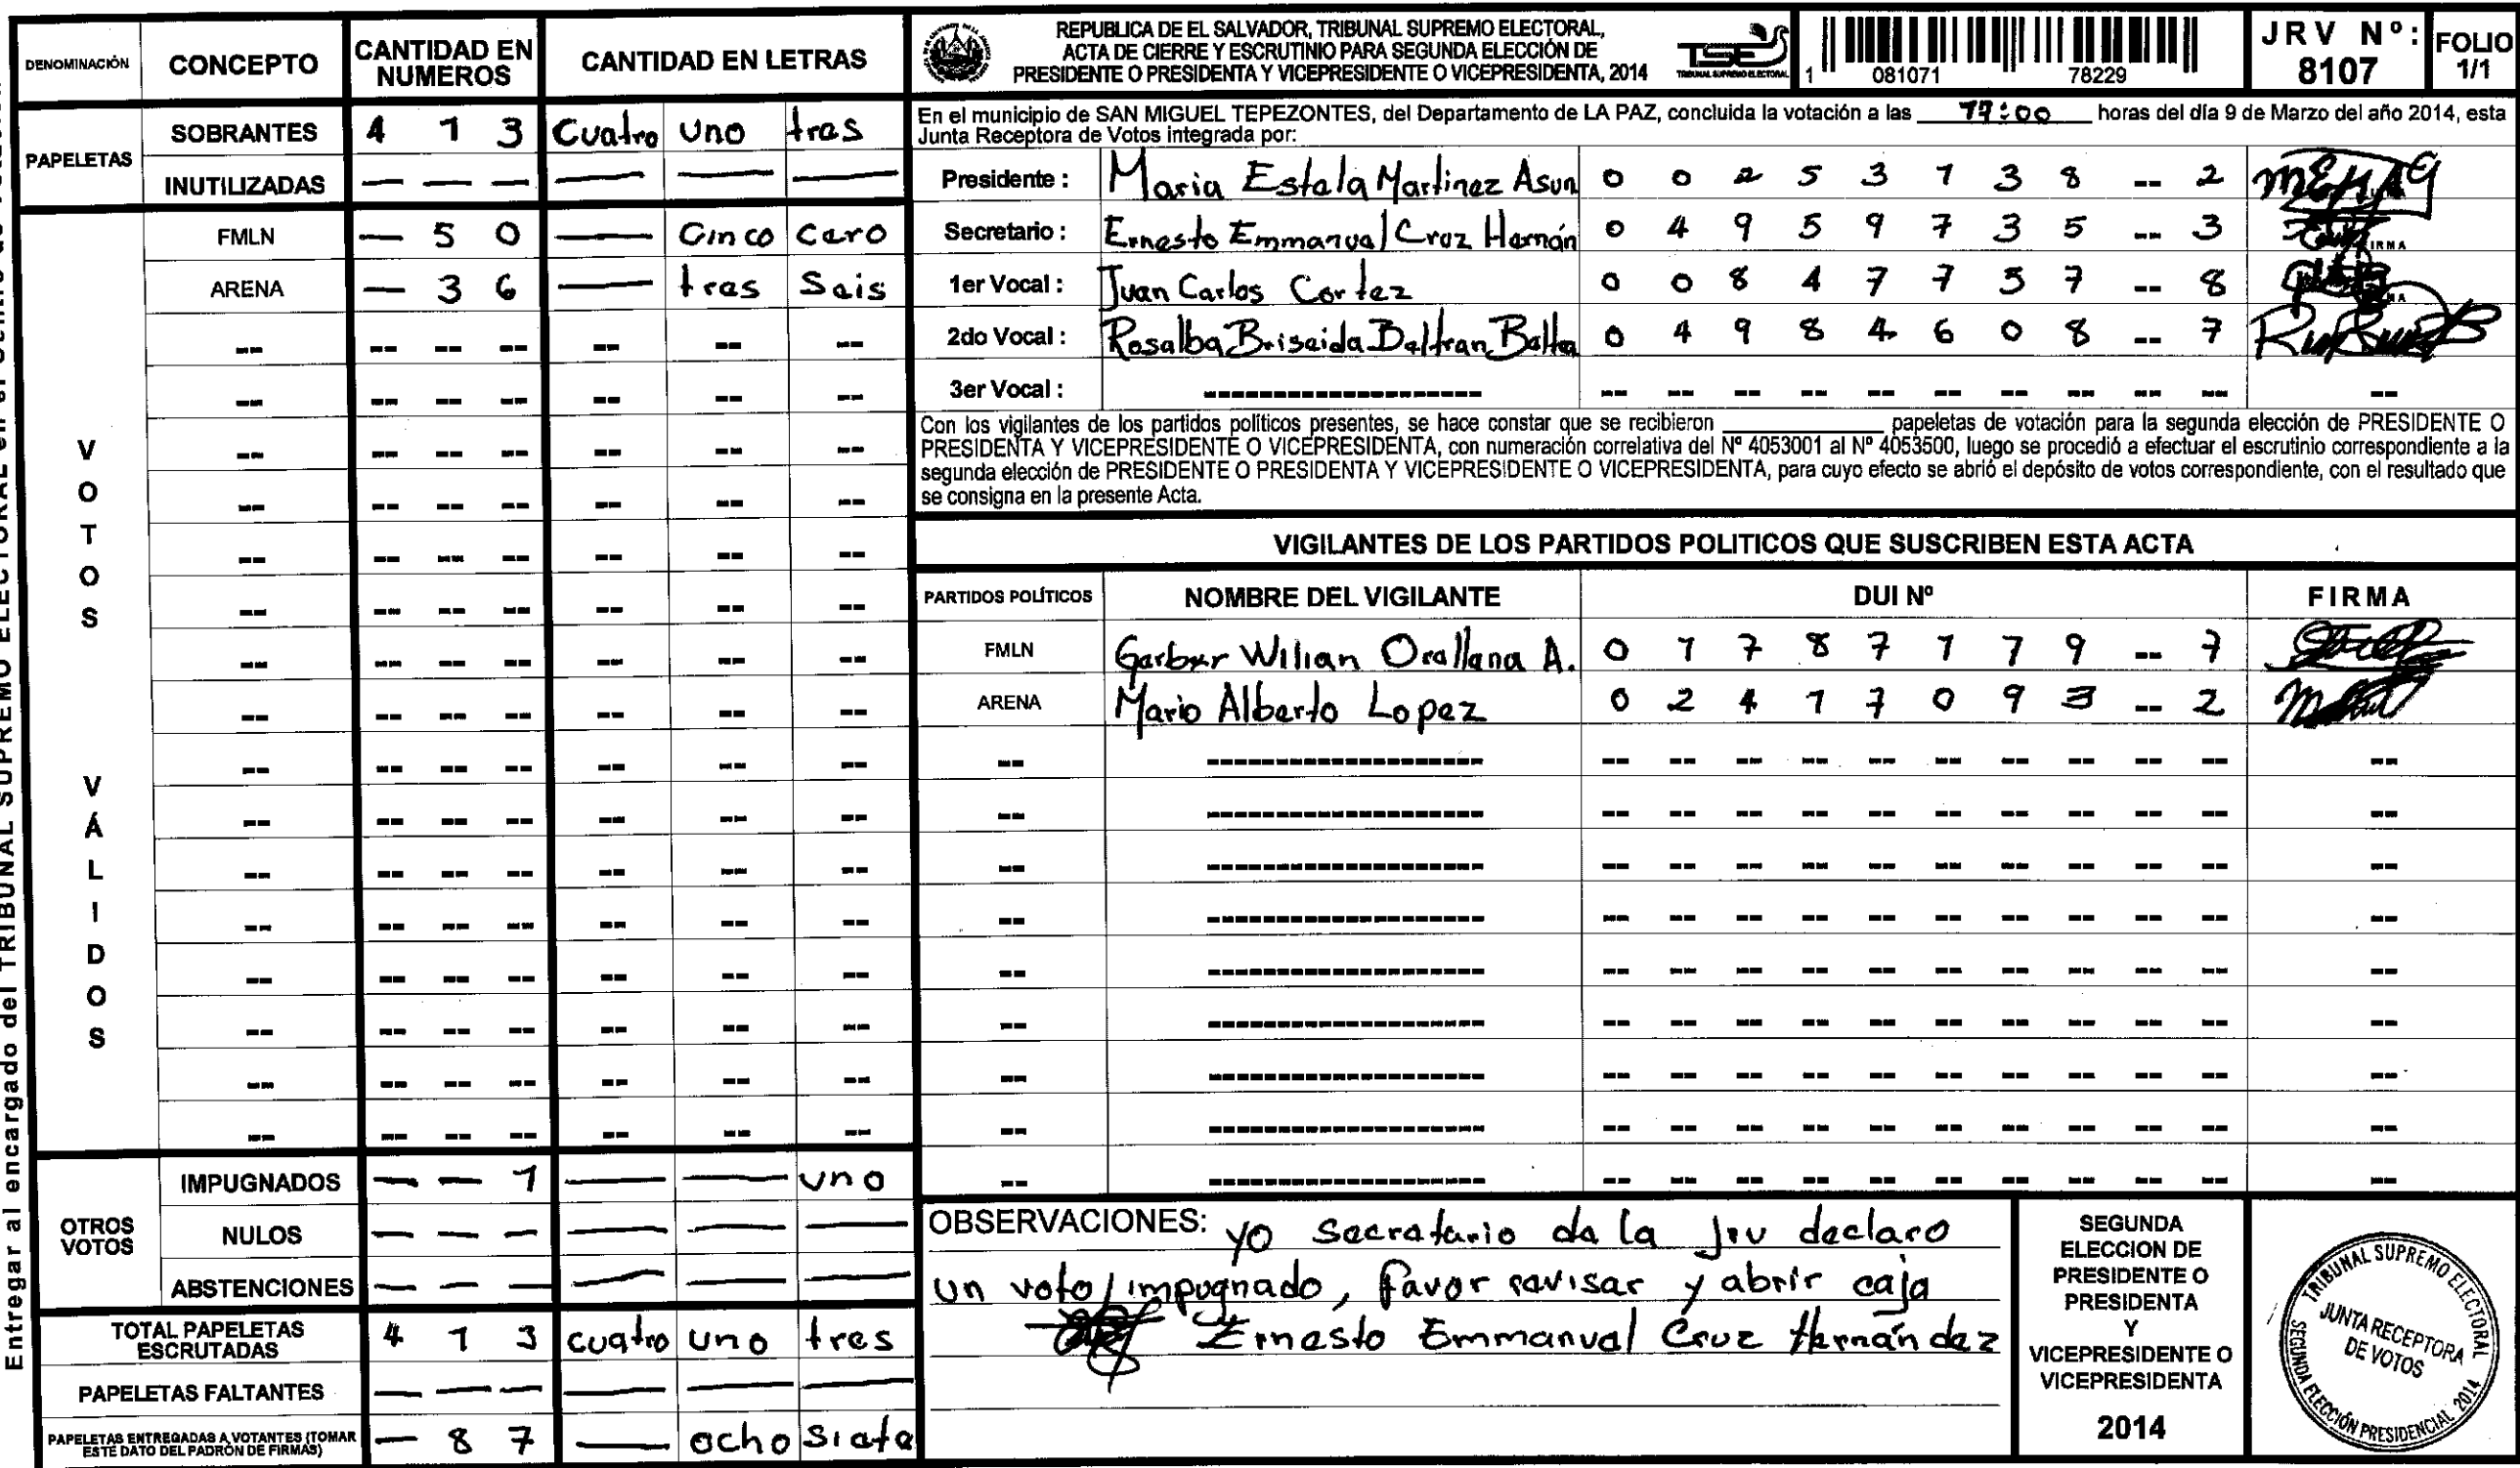 DENOMINACIÓN CONCEPTO CANTIDAD EN NUMEROS CANTIDAD EN LETRAS
PAPELETAS
SOBRANTES 4 1 3 Cuatro Uno tres
INUTILIZADAS — — — — — —
VOTOS VÁLIDOS
FMLN — 5 0 — Cinco Cero
ARENA — 3 6 — tres Seis
OTROS VOTOS
IMPUGNADOS — — 1 — — uno
NULOS — — — — — —
ABSTENCIONES — — — — — —
TOTAL PAPELETAS ESCRUTADAS 4 1 3 cuatro uno tres
PAPELETAS FALTANTES — — — — — —
PAPELETAS ENTREGADAS A VOTANTES (TOMAR ESTE DATO DEL PADRÓN DE FIRMAS) — 8 7 — ocho Siete
REPUBLICA DE EL SALVADOR, TRIBUNAL SUPREMO ELECTORAL,
ACTA DE CIERRE Y ESCRUTINIO PARA SEGUNDA ELECCIÓN DE
PRESIDENTE O PRESIDENTA Y VICEPRESIDENTE O VICEPRESIDENTA, 2014
TSE
TRIBUNAL SUPREMO ELECTORAL
1 081071 78229
JRV Nº: 8107
FOLIO 1/1
En el municipio de SAN MIGUEL TEPEZONTES, del Departamento de LA PAZ, concluida la votación a las 17:00 horas del día 9 de Marzo del año 2014, esta
Junta Receptora de Votos integrada por:
Presidente : Maria Estela Martinez Asun 0 0 2 5 3 1 3 8 -- 2
Secretario : Ernesto Emmanuel Cruz Hernán 0 4 9 5 9 7 3 5 -- 3
1er Vocal : Juan Carlos Cortez 0 0 8 4 7 7 5 7 -- 8
2do Vocal : Rosalba Briseida Beltran Belta 0 4 9 8 4 6 0 8 -- 7
3er Vocal :
Con los vigilantes de los partidos políticos presentes, se hace constar que se recibieron ____ papeletas de votación para la segunda elección de PRESIDENTE O
PRESIDENTA Y VICEPRESIDENTE O VICEPRESIDENTA, con numeración correlativa del Nº 4053001 al Nº 4053500, luego se procedió a efectuar el escrutinio correspondiente a la
segunda elección de PRESIDENTE O PRESIDENTA Y VICEPRESIDENTE O VICEPRESIDENTA, para cuyo efecto se abrió el depósito de votos correspondiente, con el resultado que
se consigna en la presente Acta.
VIGILANTES DE LOS PARTIDOS POLITICOS QUE SUSCRIBEN ESTA ACTA
PARTIDOS POLÍTICOS NOMBRE DEL VIGILANTE DUI Nº FIRMA
FMLN Garber Wilian Orellana A. 0 1 7 8 7 1 7 9 -- 7
ARENA Mario Alberto Lopez 0 2 4 1 7 0 9 3 -- 2
OBSERVACIONES: yo secretario de la jrv declaro
un voto impugnado, favor revisar y abrir caja
Ernesto Emmanuel Cruz Hernández
SEGUNDA
ELECCION DE
PRESIDENTE O
PRESIDENTA
Y
VICEPRESIDENTE O
VICEPRESIDENTA
2014
TRIBUNAL SUPREMO ELECTORAL
JUNTA RECEPTORA
DE VOTOS
SEGUNDA ELECCIÓN PRESIDENCIAL 2014
Entregar al encargado del TRIBUNAL SUPREMO ELECTORAL en el